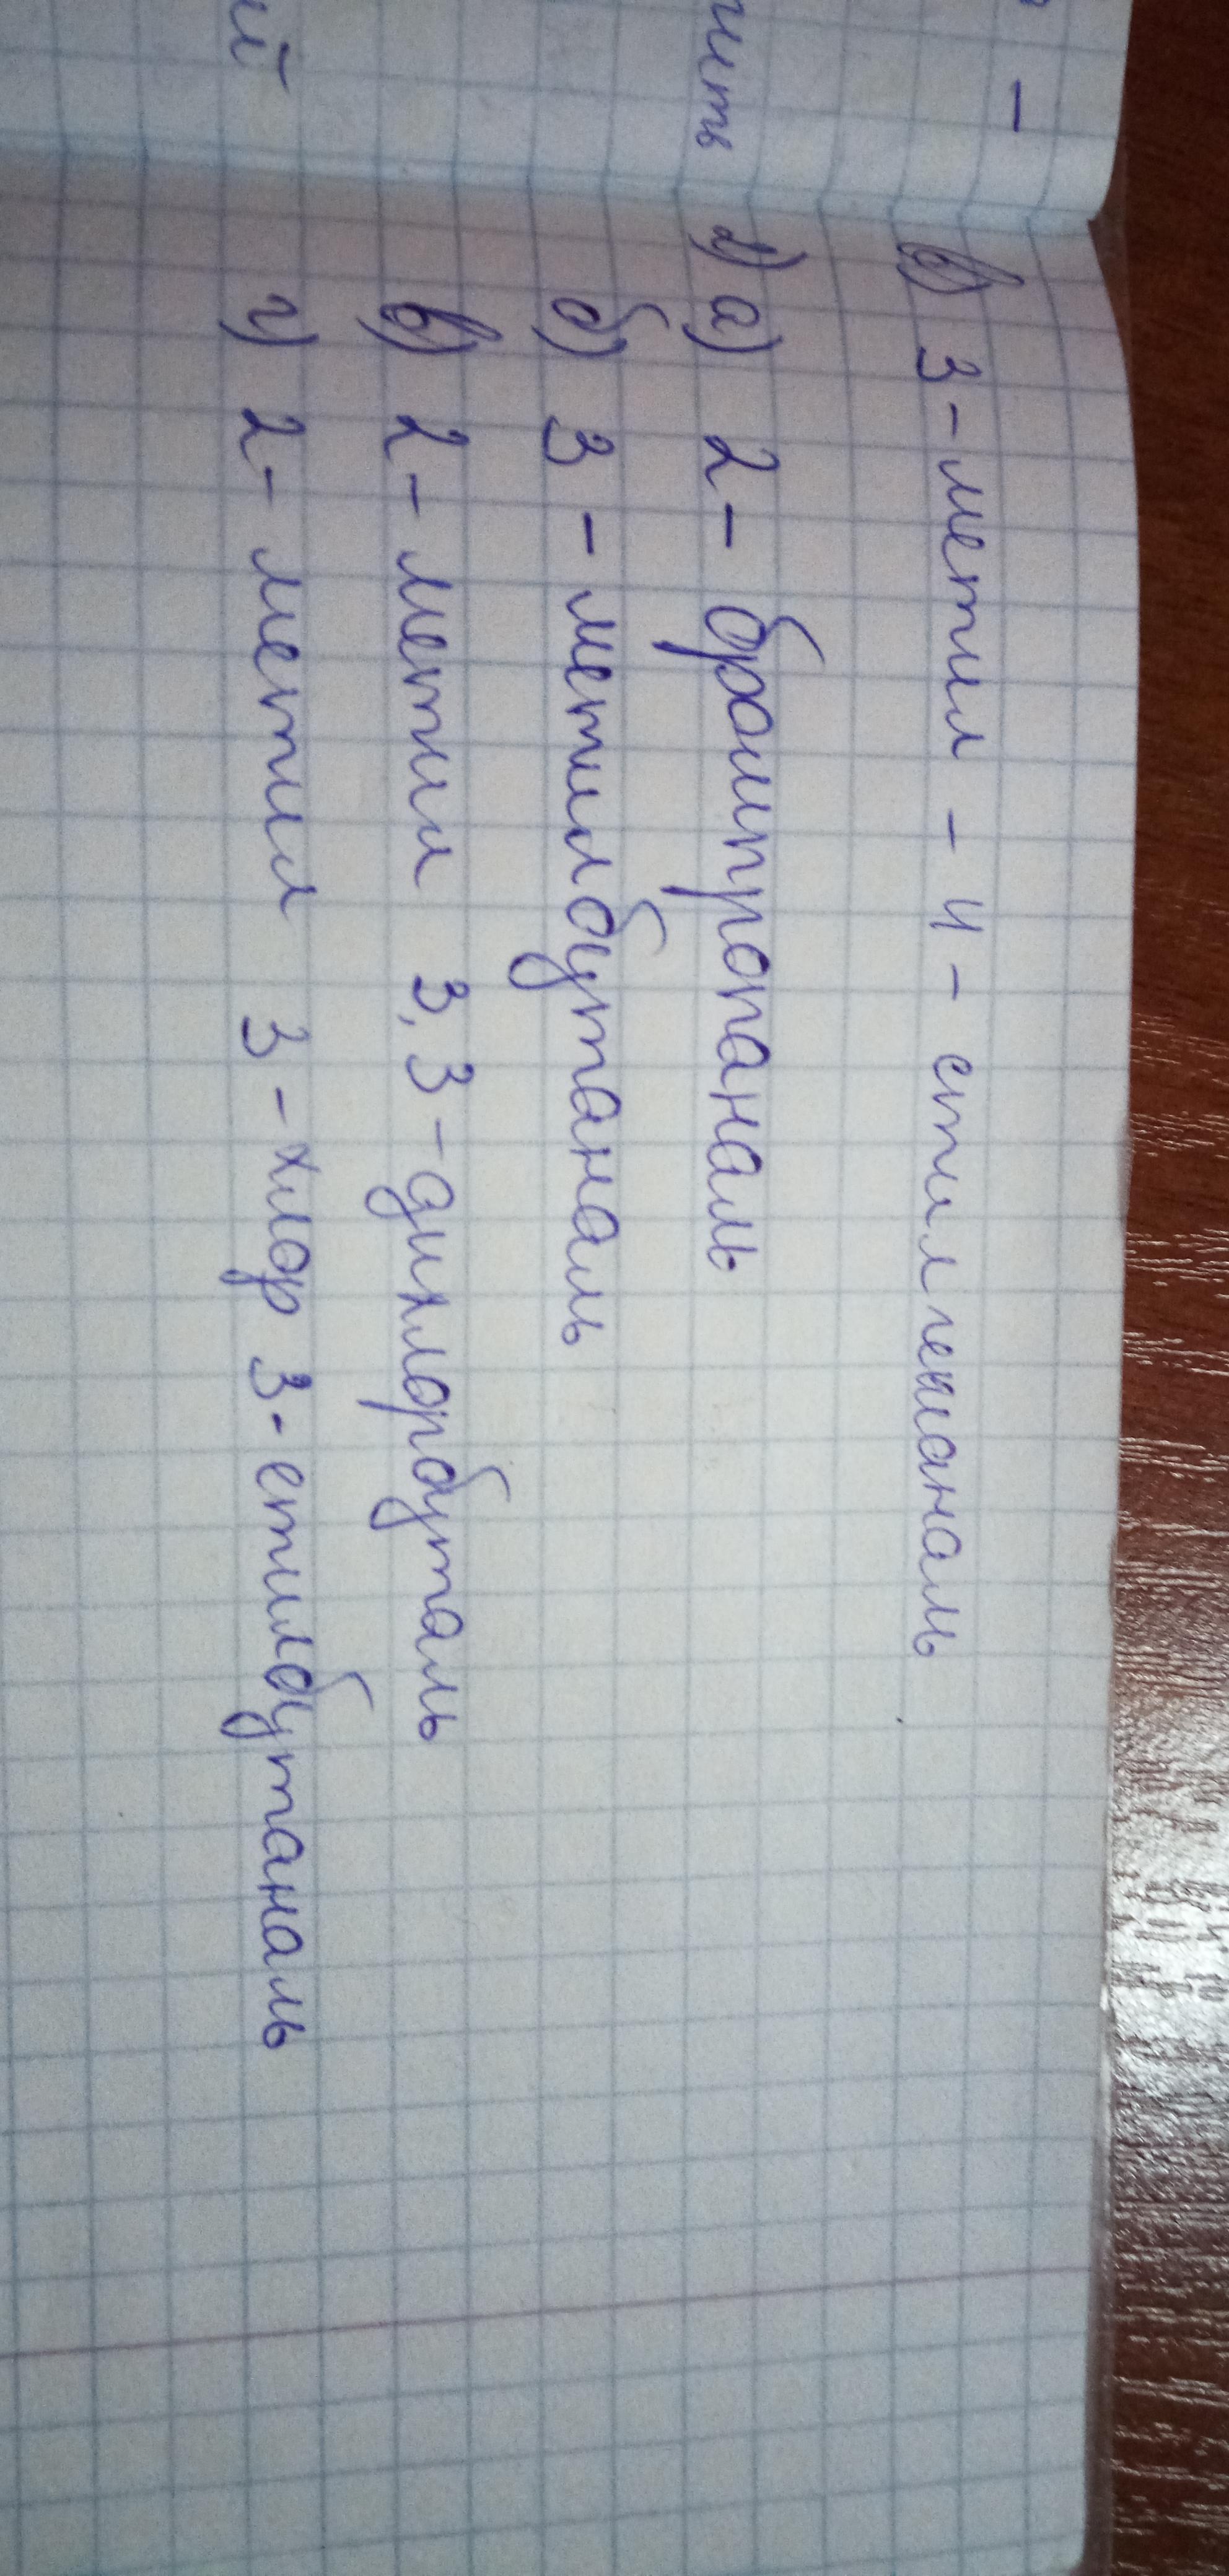 в) 3-метил - 4 - етилгексаналь
2) а) 2 - бромпропаналь
б) 3 - метилбутаналь
в) 2 - метил 3,3 - дихлорбуталь
г) 2 - метил 3 - хлор 3 - етилбутаналь